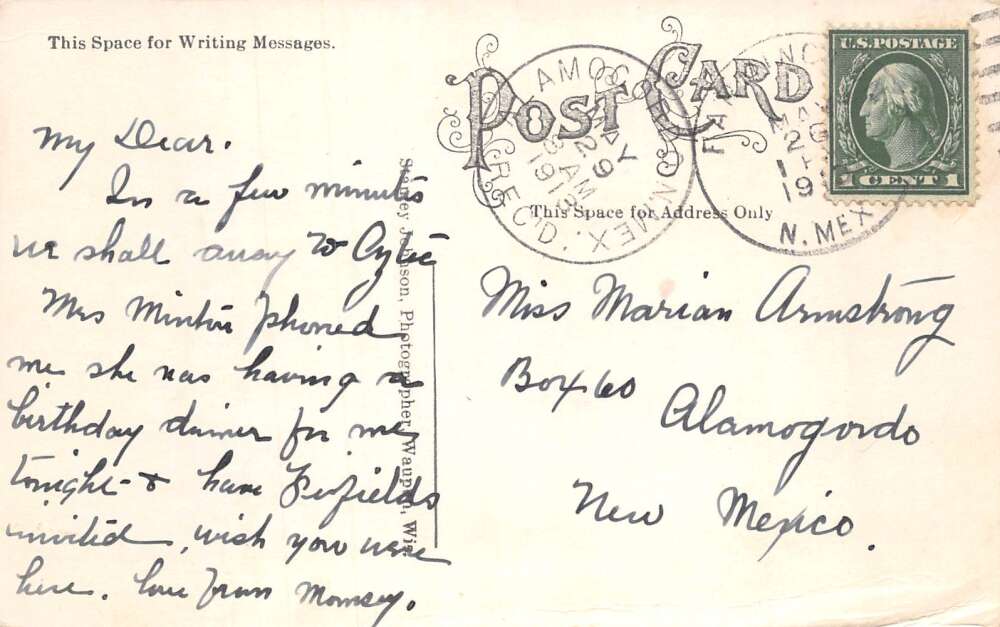 This Space for Writing Messages.
POST CARD
This Space for Address Only
U.S. POSTAGE
1 CENT 1
MAY
29
AM
1913
REC'D.
N.MEX.
MAY
N. MEX
My Dear.
In a few minutes
we shall away to
Mrs Minton phoned
me she was having a
birthday dinner for me
tonight & have Penfields
invited, wish you were
here. love from Momsey.
Stanley Johnson, Photographer, Waupun, Wis.
Miss Marian Armstrong
Box 60
Alamogordo
New Mexico.